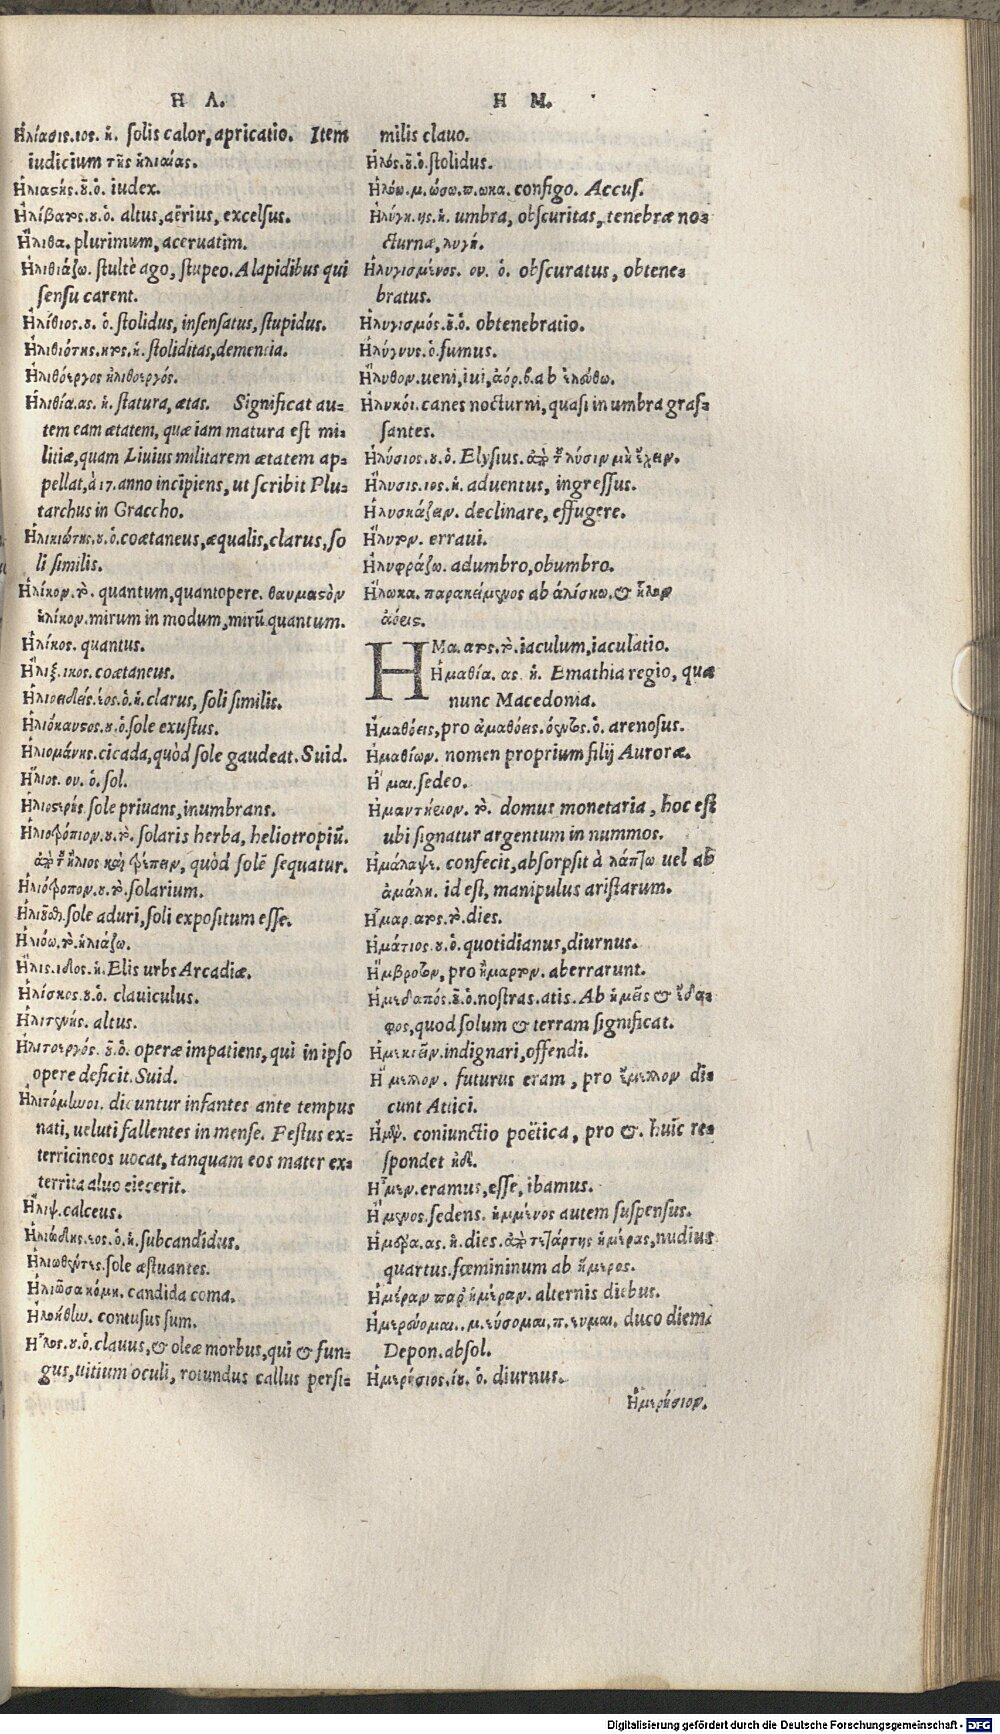 Η Λ.
Ἡλίασις.ιος. ἡ. ſolis calor, apricatio. Item
iudicium τῆς ἡλιαίας.
Ἡλιαςής.ȣ͂.ὁ. iudex.
Ἠλίβατος.ȣ.ὁ. altus, aërius, excelſus.
Ἤλιθα. plurimum, aceruatim.
Ἠλιθιάζω. ſtultè ago, ſtupeo. A lapidibus qui
ſenſu carent.
Ἠλίθιος.ȣ. ὁ. ſtolidus, inſenſatus, ſtupidus.
Ἠλιθιότης.ητος.ἡ. ſtoliditas, dementia.
Ἠλιθόεργος ἠλιθοεργός.
Ἡλιθία.ας. ἡ. ſtatura, ætas. Significat au-
tem eam ætatem, quæ iam matura eſt mi-
litiæ, quam Liuius militarem ætatem ap-
pellat, à 17. anno incipiens, ut ſcribit Plu-
tarchus in Graccho.
Ἡλικιώτης.ȣ.ὁ. coætaneus, æqualis, clarus, ſo
li ſimilis.
Ἡλίκον.τὸ. quantum, quantopere. θαυμαςὸν
ἡλίκον. mirum in modum, mirũ quantum.
Ἡλίκος. quantus.
Ἧλιξ.ικος. coætaneus.
Ἡλιοειδής.έος.ὁ.ἡ. clarus, ſoli ſimilis.
Ἡλιόκαυςος.ȣ.ὁ. ſole exuſtus.
Ἡλιομάνης. cicada, quòd ſole gaudeat. Suid.
Ἥλιος. ου. ὁ. ſol.
Ἡλιοςερής. ſole priuans, inumbrans.
Ἡλιοτρόπιον.ȣ.τὸ. ſolaris herba, heliotropiũ.
ἀπὸ τȣ͂ ἥλιος καὶ τρέπειν, quòd ſolẽ ſequatur.
Ἡλιότροπον.ȣ.τὸ. ſolarium.
Ἡλιȣ͂θαι. ſole aduri, ſoli expoſitum eſſe.
Ἡλιόω. τὸ. ἡλιάζω.
Ἦλις.ιδος. ἡ. Elis urbs Arcadiæ.
Ἡλίσκος.ȣ.ὁ. clauiculus.
Ἠλιτενής. altus.
Ἠλιτοεργός. ȣ͂.ὁ. operæ impatiens, qui in ipſo
opere deficit. Suid.
Ἠλιτόμηνοι. dicuntur infantes ante tempus
nati, ueluti fallentes in menſe. Feſtus ex-
terricineos uocat, tanquam eos mater ex-
territa aluo eiecerit.
Ἧλιψ. calceus.
Ἡλιώδης.εος.ὁ.ἡ. ſubcandidus.
Ἡλιωθέντες. ſole æſtuantes.
Ἡλιῶσα κόμη. candida coma.
Ἠλοήθην. contuſus ſum.
Ἧλος.ȣ.ὁ. clauus, & oleæ morbus, qui & fun-
gus, uitium oculi, rotundus callus perſi-
Η Μ.
milis clauo.
Ἠλός.ȣ͂.ὁ. ſtolidus.
Ἡλόω.μ.ώσω.π.ωκα. configo. Accuſ.
Ἠλύγη.ης.ἡ. umbra, obſcuritas, tenebræ no-
cturnæ, λυγή.
Ἠλυγισμένος. ου. ὁ. obſcuratus, obtene-
bratus.
Ἠλυγισμός.ȣ͂.ὁ. obtenebratio.
Ἠλύγνυς.ὁ. fumus.
Ἤλυθον. ueni, iui, ἀόρ.β. ab ἐλεύθω.
Ἠλυκόι. canes nocturni, quaſi in umbra graſ-
ſantes.
Ἠλύσιος.ȣ.ὁ. Elyſius. ἀπὸ τȣ͂ λύσιν μὴ ἔχειν.
Ἤλυσις.ιος.ἡ. aduentus, ingreſſus.
Ἠλυσκάζειν. declinare, effugere.
Ἤλυτον. erraui.
Ἠλυφράζω. adumbro, obumbro.
Ἥλωκα. παρακείμενος ab ἁλίσκω. & ἥλων
ἀόρεις.
ΗΜα. ατος.τὸ. iaculum, iaculatio.
Ἠμαθία. ας. ἡ. Emathia regio, quæ
nunc Macedonia.
Ἠμαθόεις, pro ἀμαθόεις.όεντος.ὁ. arenoſus.
Ἠμαθίων. nomen proprium filij Auroræ.
Ἧμαι. ſedeo.
Ἠμαντήειον. τὸ. domus monetaria, hoc eſt
ubi ſignatur argentum in nummos.
Ἠμάλαψε. confecit, abſorpſit à λάπτω uel ab
ἀμάλη. id eſt, manipulus ariſtarum.
Ἦμαρ.ατος.τὸ. dies.
Ἠμάτιος.ȣ.ὁ. quotidianus, diurnus.
Ἤμβροτον, pro ἥμαρτον. aberrarunt.
Ἡμεδαπός.ȣ͂.ὁ. noſtras. atis. Ab ἡμεῖς & ἔδα-
φος, quod ſolum & terram ſignificat.
Ἡμεκτεῖν. indignari, offendi.
Ἤμελλον. futurus eram, pro ἔμελλον di-
cunt Attici.
Ἠμὲν. coniunctio poëtica, pro &. huic re-
ſpondet ἠδὲ.
Ἦμεν. eramus, eſſe, ibamus.
Ἥμενος. ſedens. ἡμμένος autem ſuſpenſus.
Ἡμέρα.ας. ἡ. dies. ἀπὸ τετάρτης ἡμέρας, nudius
quartus. fœmininum ab ἥμερος.
Ἡμέραν παρ' ἡμέραν. alternis diebus.
Ἡμερεύομαι..μ.εύσομαι.π.ευμαι. duco diem.
Depon. abſol.
Ἡμερήσιος.ίȣ. ὁ. diurnus.
Ἡμερήσιον.
Digitalisierung gefördert durch die Deutsche Forschungsgemeinschaft - DFG